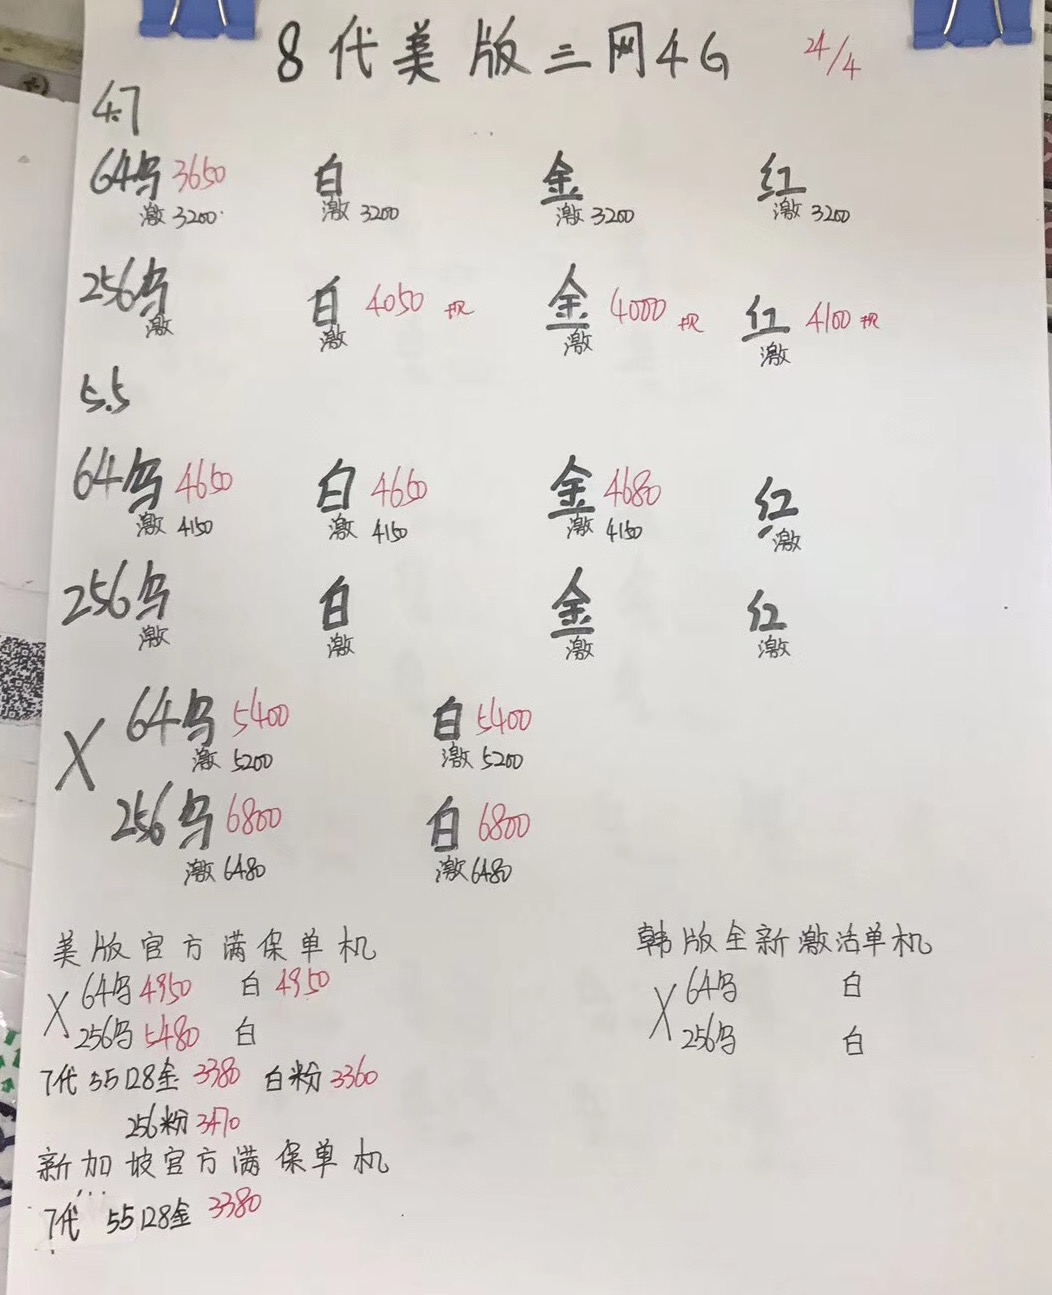 8代美版三网4G 24/4
4.7
64乌 3650 白 金 红
激 3200 激 3200 激 3200 激 3200
256乌 白 4050 金 4000 红 4100
激 激 激 激
5.5
64乌 4650 白 4650 金 4680 红
激 4150 激 4150 激 4150 激
256乌 白 金 红
激 激 激 激
X 64乌 5400 白 5400
激 5200 激 5200
256乌 6800 白 6800
激 6480 激 6480
美版官方满保单机
X 64乌 4950 白 4950
256乌 5480 白
7代 55 128金 3380 白粉 3360
256粉 3470
新加坡官方满保单机
7代 55 128金 3380
韩版全新激活单机
X 64乌 白
256乌 白